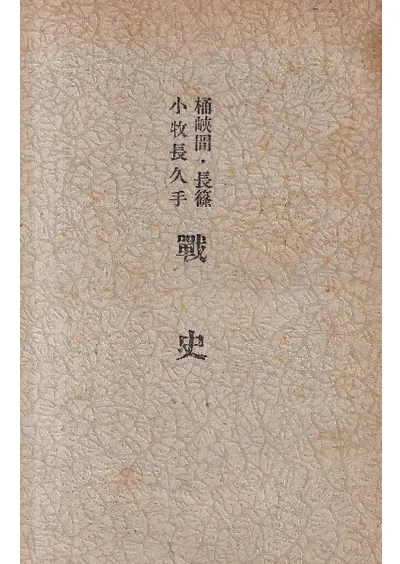 桶峽間・長篠
小牧長久手
戰史